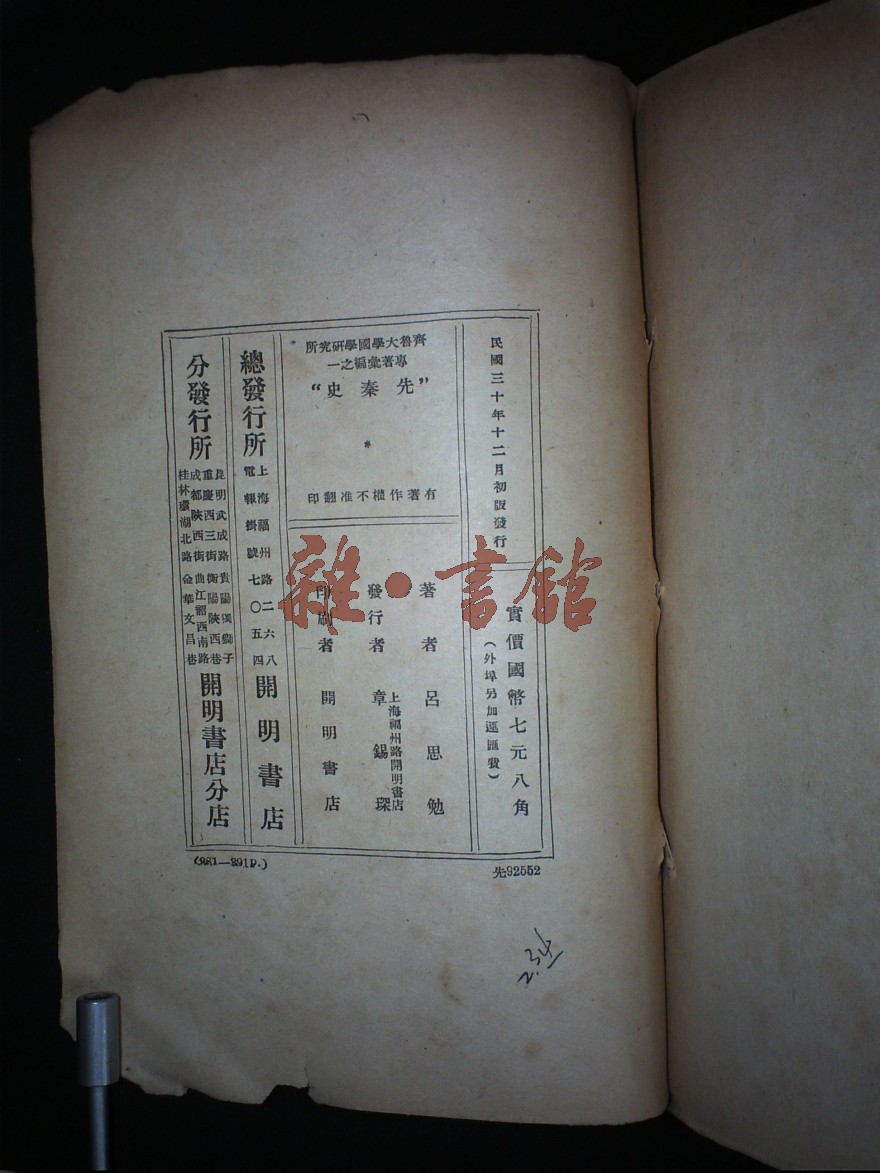 民國三十年十二月初版發行
實價國幣七元八角
(外埠另加運匯費)
齊魯大學國學研究所
專著彙編之一
“先秦史”
有著作權不准翻印
著者 呂思勉
發行者 章錫琛
上海福州路開明書店
印刷者 開明書店
總發行所
上海福州路二六八
電報掛號七〇五四
開明書店
分發行所
昆明武成路 貴陽獨獅子
重慶西三街 衡陽陝西巷
成都陝西街 曲江韶西南路
桂林環湖北路 金華文昌巷
開明書店分店
(281—391P.)
先92552
2.34
雜·書館